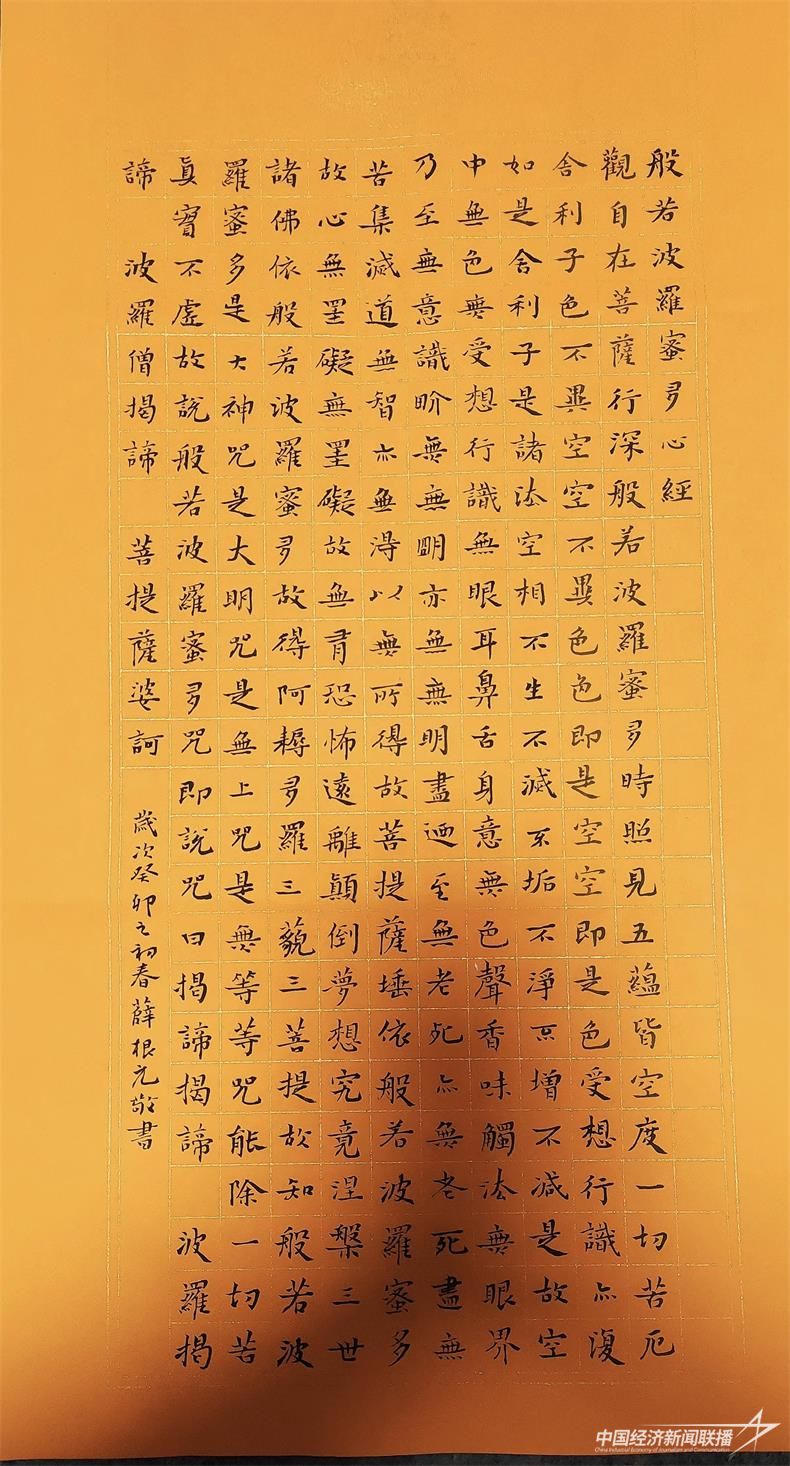 般若波羅蜜多心經
觀自在菩薩行深般若波羅蜜多時照見五蘊皆空度一切苦厄
舍利子色不異空空不異色色即是空空即是色受想行識亦復
如是舍利子是諸法空相不生不滅不垢不淨不增不減是故空
中無色無受想行識無眼耳鼻舌身意無色聲香味觸法無眼界
乃至無意識界無無明亦無無明盡迺至無老死亦無老死盡無
苦集滅道無智亦無得以無所得故菩提薩埵依般若波羅蜜多
故心無罣礙無罣礙故無有恐怖遠離顛倒夢想究竟涅槃三世
諸佛依般若波羅蜜多故得阿耨多羅三藐三菩提故知般若波
羅蜜多是大神咒是大明咒是無上咒是無等等咒能除一切苦
真實不虛故說般若波羅蜜多咒即說咒曰揭諦揭諦 波羅揭
諦 波羅僧揭諦 菩提薩婆訶
歲次癸卯之初春薛根元敬書
中国经济新闻联播
China Industrial Economy of Journalism and Communication